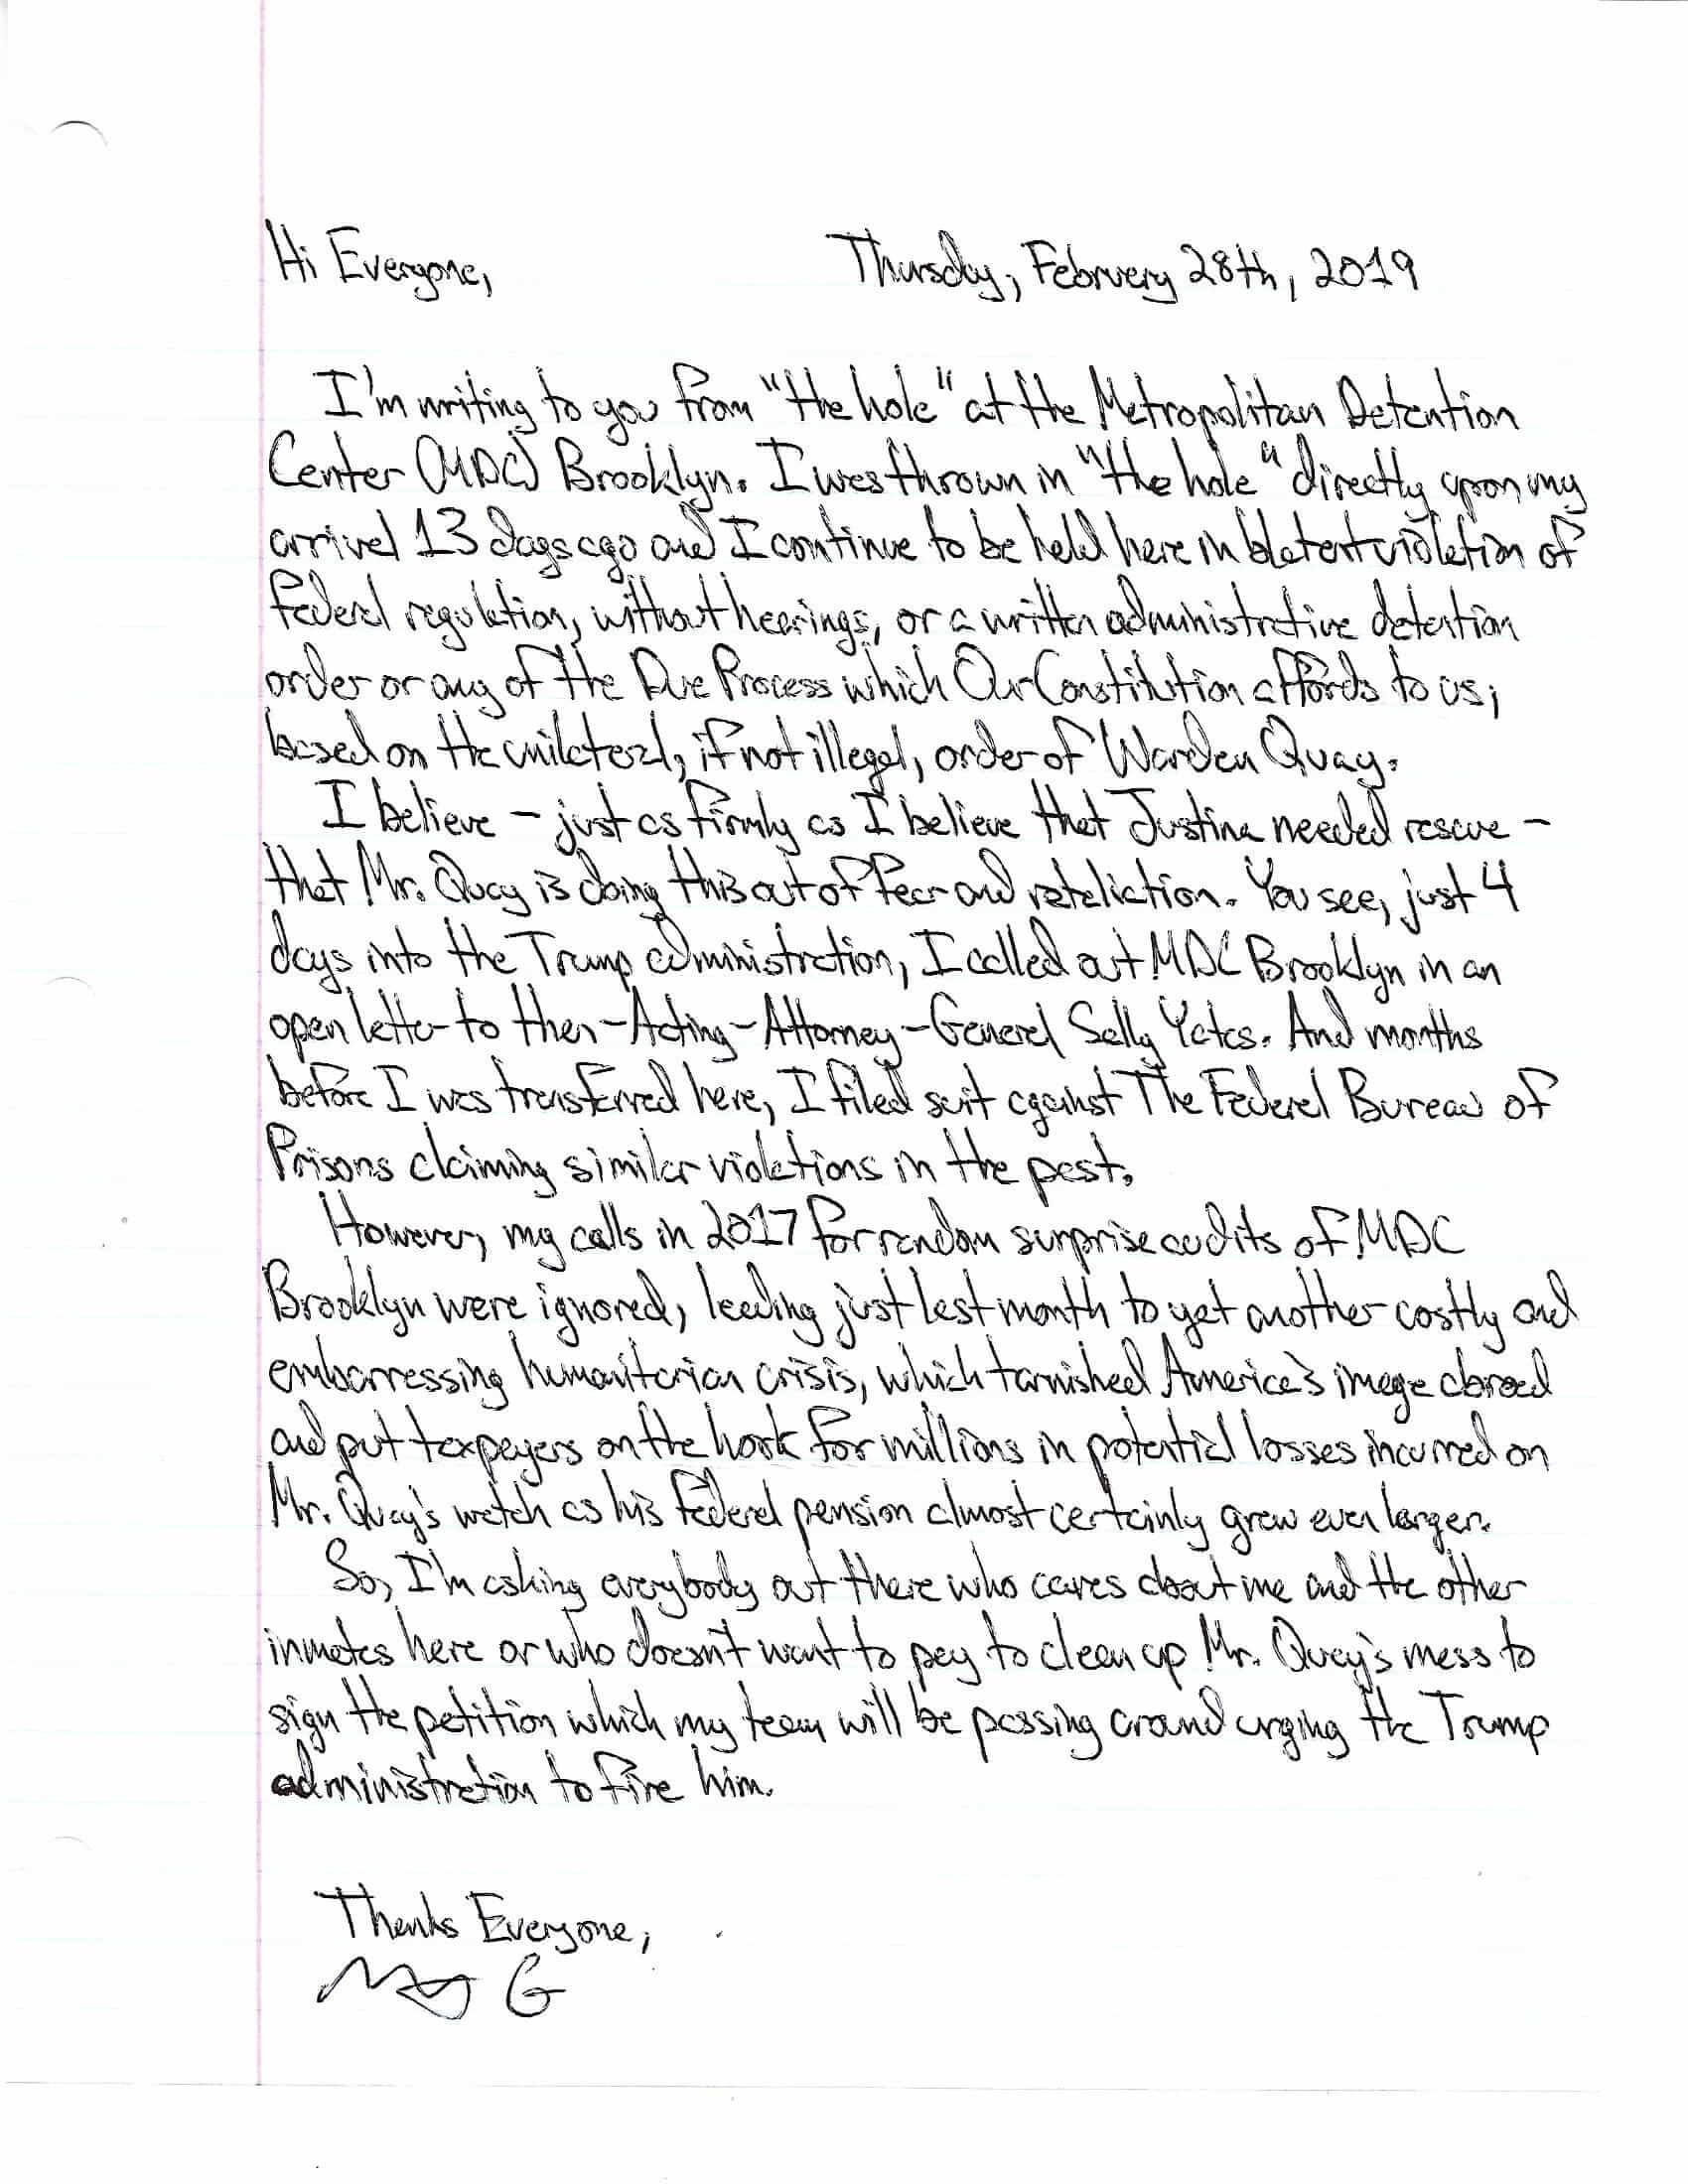 Hi Everyone,
Thursday, February 28th, 2019
I'm writing to you from "the hole" at the Metropolitan Detention
Center (MDC) Brooklyn. I was thrown in "the hole" directly upon my
arrival 13 days ago and I continue to be held here in blatent violation of
federal regulation, without hearings, or a written administrative detention
order or any of the Due Process which Our Constitution affords to us;
based on the unilateral, if not illegal, order of Warden Quay.
I believe – just as firmly as I believe that Justina needed rescue –
that Mr. Quay is doing this out of fear and retaliation. You see, just 4
days into the Trump administration, I called out MDC Brooklyn in an
open letter to then-Acting-Attorney-General Sally Yates. And months
before I was transferred here, I filed suit against The Federal Bureau of
Prisons claiming similar violations in the past.
However, my calls in 2017 for random surprise audits of MDC
Brooklyn were ignored, leading just last month to yet another costly and
embarressing humanitarian crisis, which tarnished America's image abroad
and put taxpayers on the hook for millions in potential losses incurred on
Mr. Quay's watch as his federal pension almost certainly grew even larger.
So, I'm asking everybody out there who cares about me and the other
inmates here or who doesn't want to pay to clean up Mr. Quay's mess to
sign the petition which my team will be passing around urging the Trump
administration to fire him.
Thanks Everyone,
G